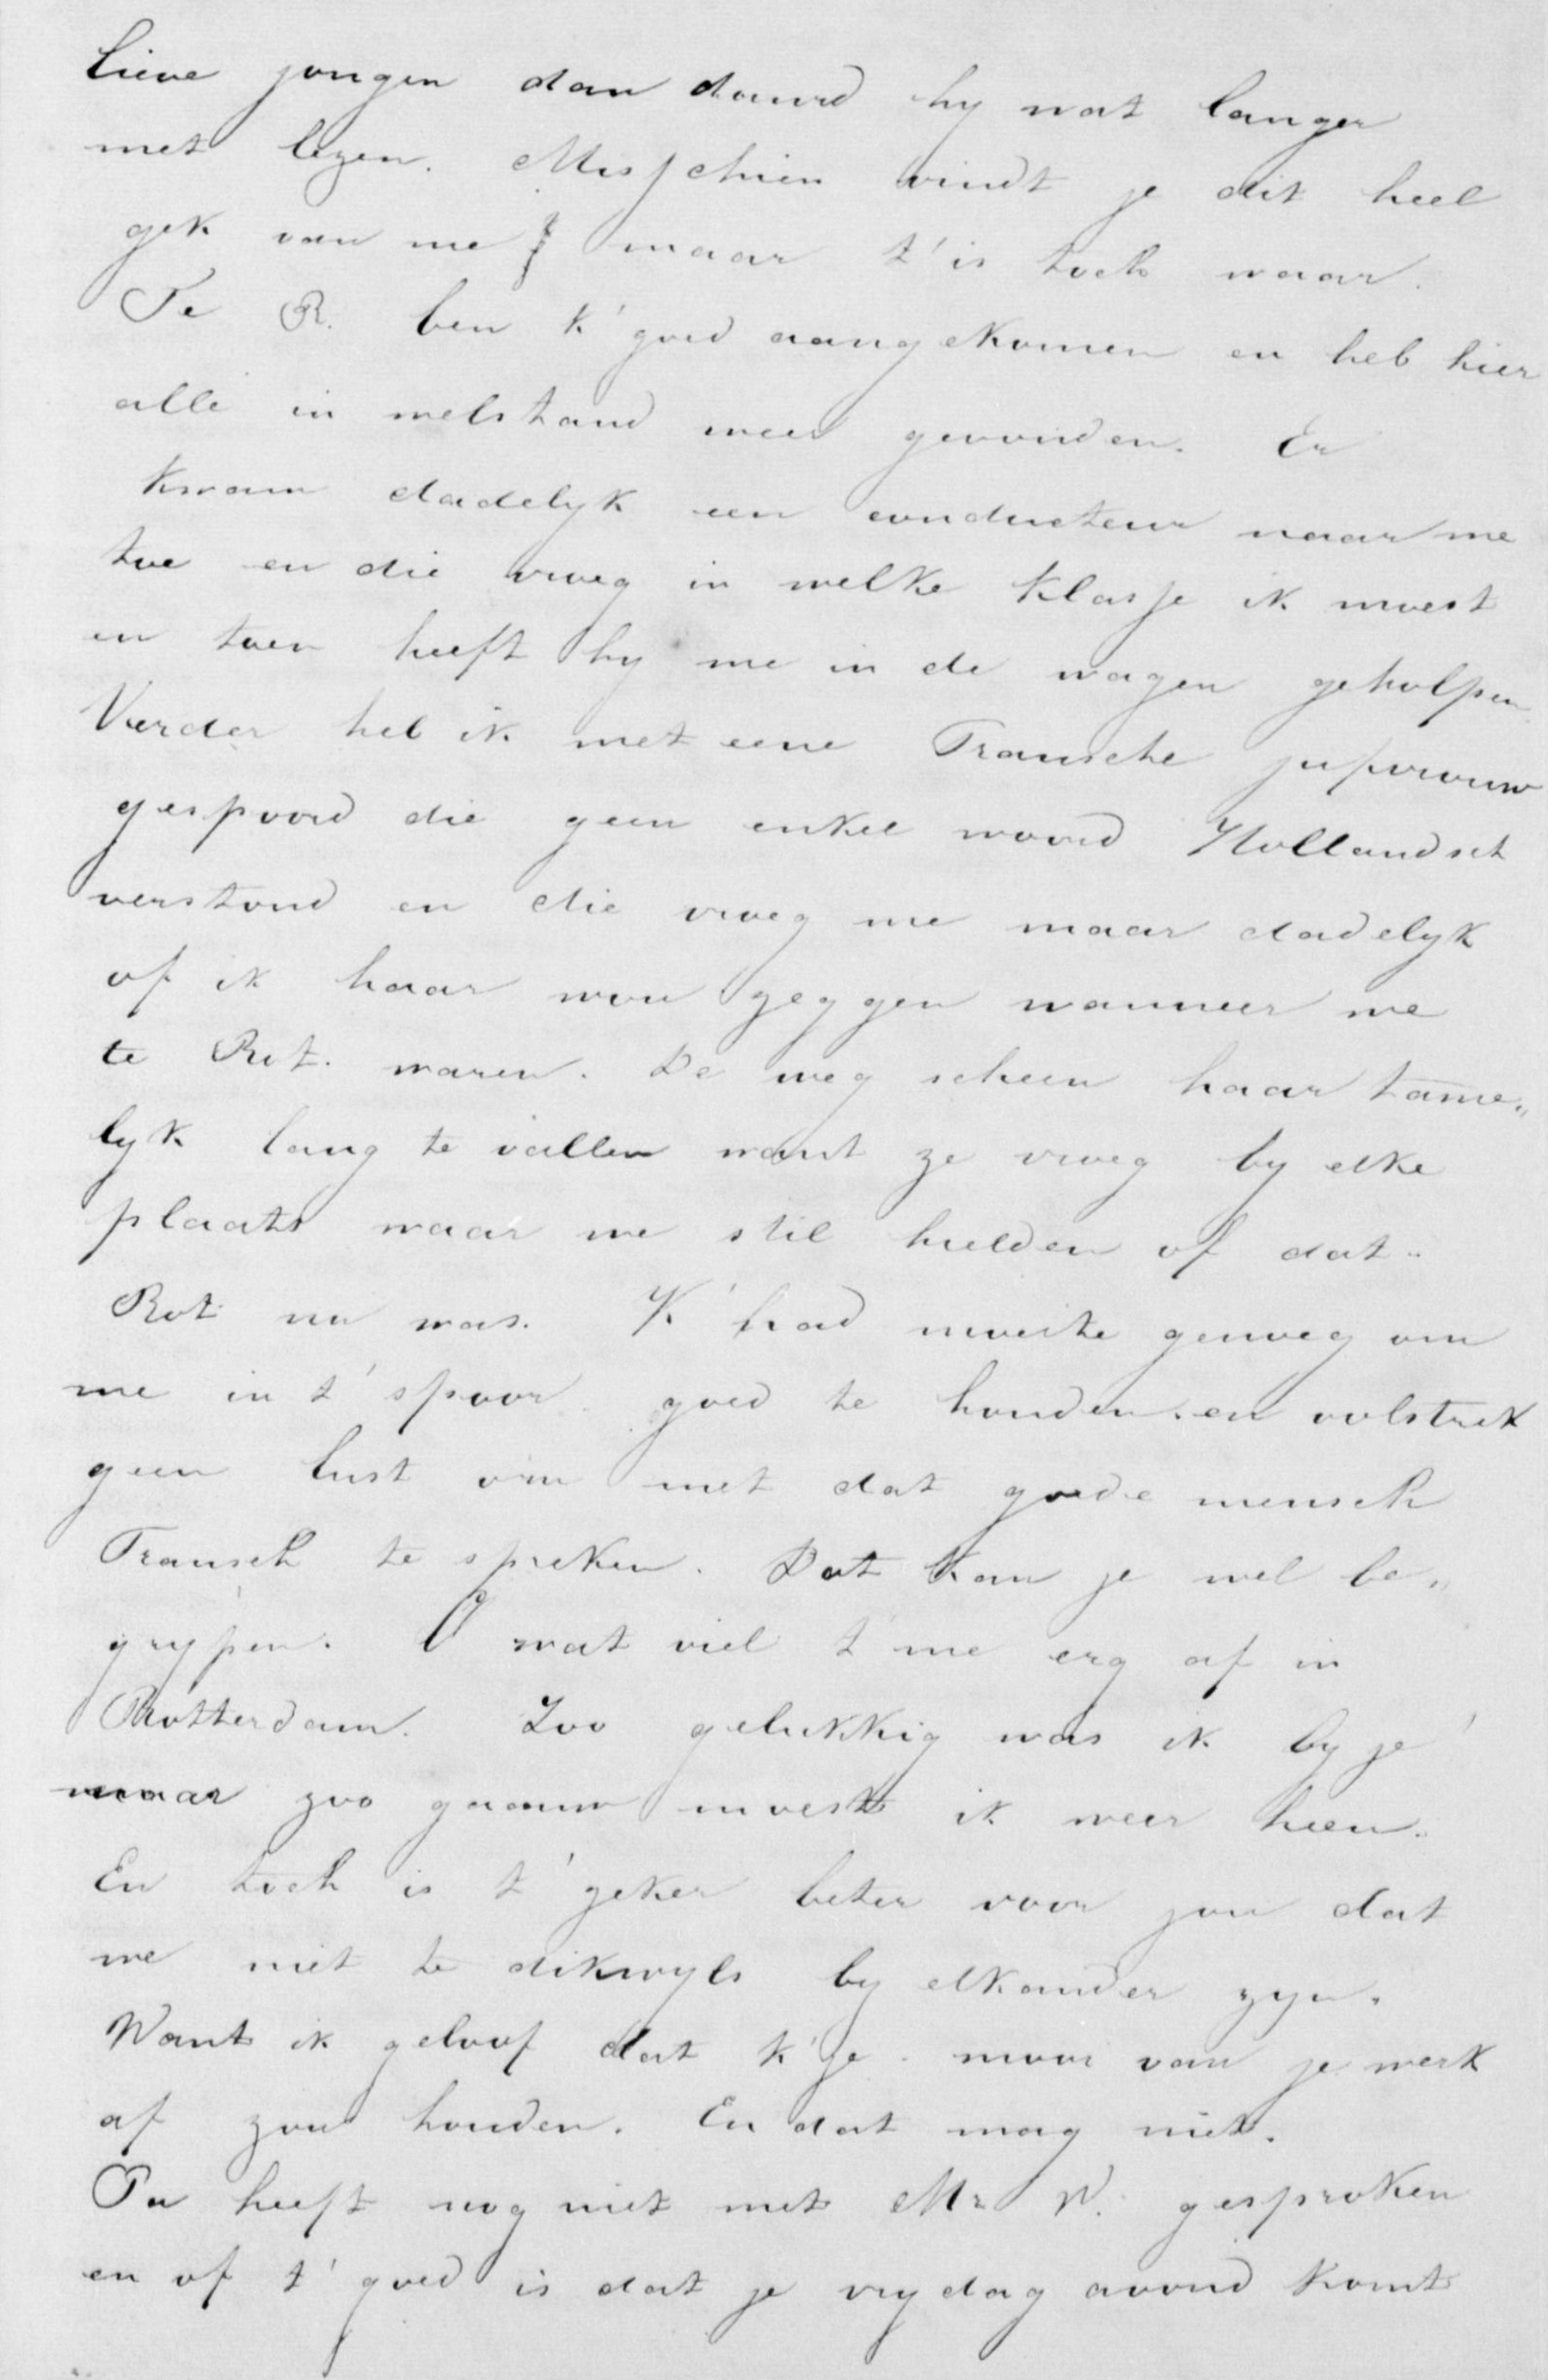 lieve jongen dan duurd hy wat langer
met lezen. Misschien vindt je dit heel
gek van me maar t' is toch waar.
Te R. ben k' goed aangekomen en heb hier
alle in welstand weer gevonden. Er
kwam dadelyk een conducteur naar me
toe en die vroeg in welke klasse ik moest
en toen heeft hy me in de wagen geholpen
Verder heb ik met eene Fransche jufvrouw
gespoord die geen enkel woord Hollandsch
verstond en die vroeg me maar dadelyk
of ik haar wou zeggen wanneer we
te Rot. waren. De weg scheen haar tame„
lyk lang te vallen want ze vroeg by elke
plaats waar we stil hielden of dat
Rot nu was. K' had moeite genoeg om
me in t' spoor goed te houden en volstrek
geen lust om met dat goede mensch
Fransch te spreken. Dat kan je wel be„
grypen. O wat viel t' me erg af in
Rotterdam. Zoo gelukkig was ik by je
maar zoo gaauw moest ik weer heen.
En toch is t' zeker beter voor jou dat
we niet te dikwyls by elkander zyn.
Want ik geloof dat k' je mooi van je werk
af zou houden. En dat mag niet.
Pa heeft nog niet met Mr W. gesproken
en of t' goed is dat je vrydag avond komt